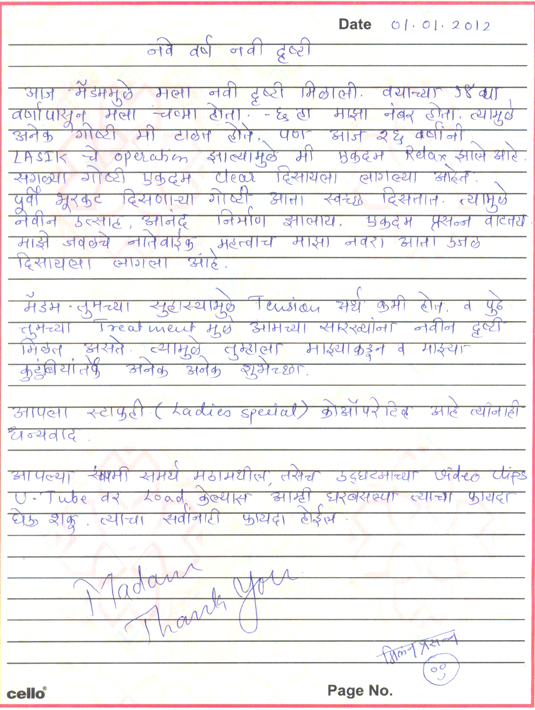 Date 01.01.2012
नवे वर्ष नवी दृष्टी
आज मॅडममुळे मला नवी दृष्टी मिळाली. वयाच्या
वर्षापासून मला चष्मा होता. -६ हा माझा नंबर होता. त्यामुळे
अनेक गोष्टी मी टाळत होते. पण आज २६ वर्षांनी
LASIK चे operation झाल्यामुळे मी एकदम Relax झाले आहे.
सगळ्या गोष्टी एकदम clear दिसायला लागल्या आहेत.
पूर्वी भुरकट दिसणाऱ्या गोष्टी आता स्वच्छ दिसतात. त्यामुळे
नवीन उत्साह, आनंद निर्माण झालाय. एकदम प्रसन्न वाटतय.
माझे जवळचे नातेवाईक महत्वाच माझा नवरा आता उजळ
दिसायला लागला आहे.
मॅडम - तुमच्या सुहास्यामुळे Tension सर्व कमी होत. व पुढे
तुमच्या Treatment मुळे आमच्या सारख्यांना नवीन दृष्टी
मिळत असते. त्यामुळे तुम्हाला माझ्याकडून व माझ्या
कुटुंबीयांतर्फे अनेक अनेक शुभेच्छा.
आपला स्टाफही (Ladies special) कोऑपरेटिव्ह आहे त्यांनाही
धन्यवाद.
आपल्या स्वामी समर्थ मठामधील, तसेच उद्घाटनाच्या video clips
U-Tube वर Load केल्यास आम्ही घरबसल्या त्याचा फायदा
घेऊ शकू. त्याचा सर्वांनाही फायदा होईल.
Madam
Thank You
cello
Page No.